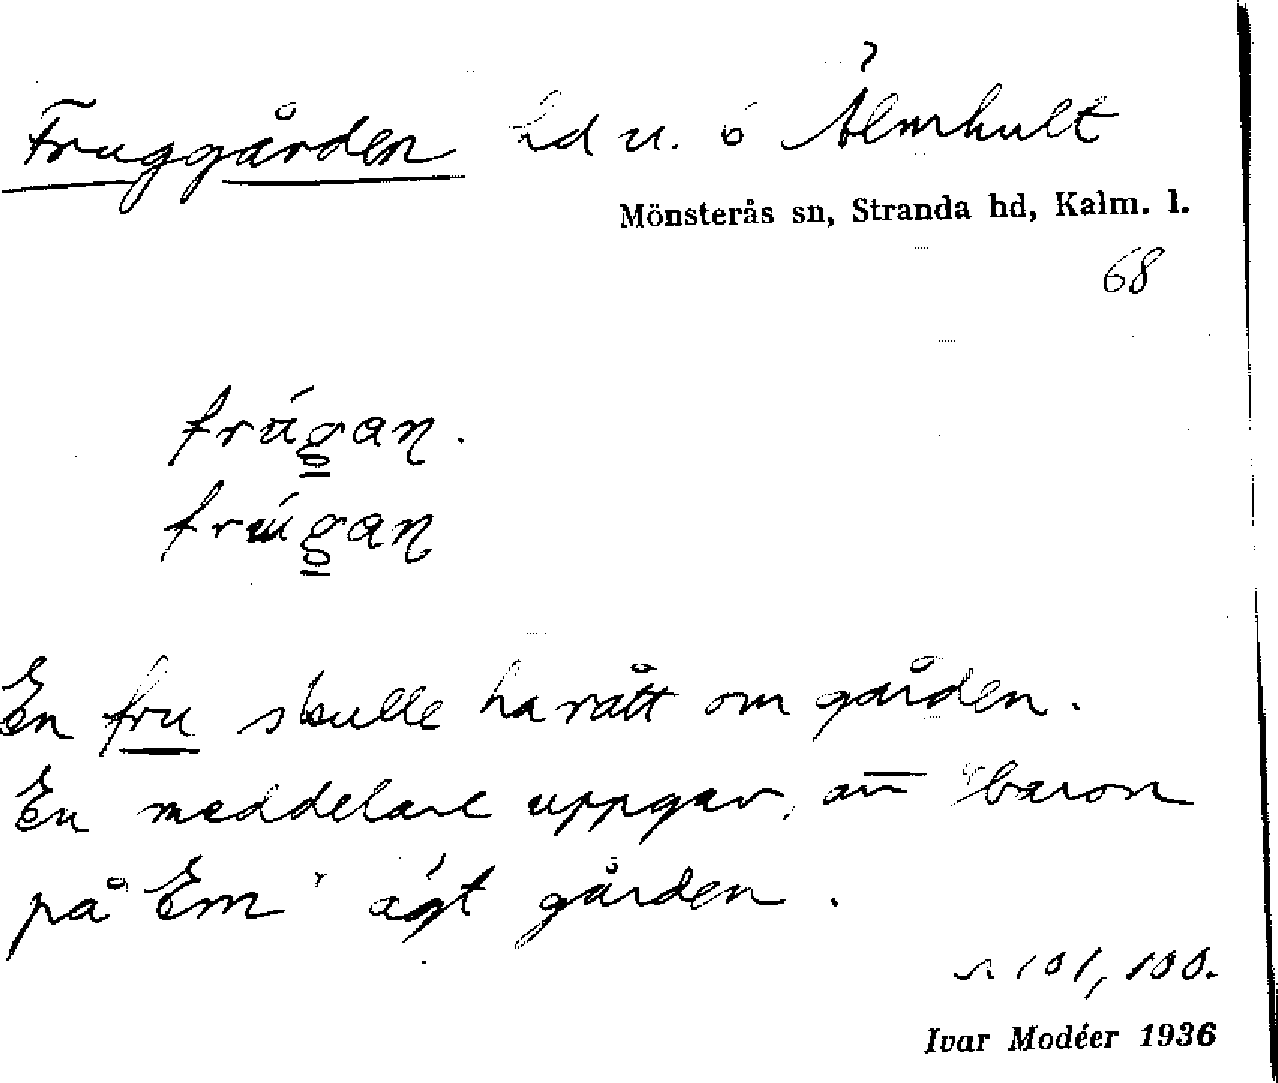 Fruggården hd u. ö Älmhult
Mönsterås sn, Stranda hd, Kalm. l.
68
frúgan.
frúgan
En fru skulle ha rått om gården.
En meddelare uppgav, att "baron
på Em" ägt gården.
101, 100.
Ivar Modéer 1936